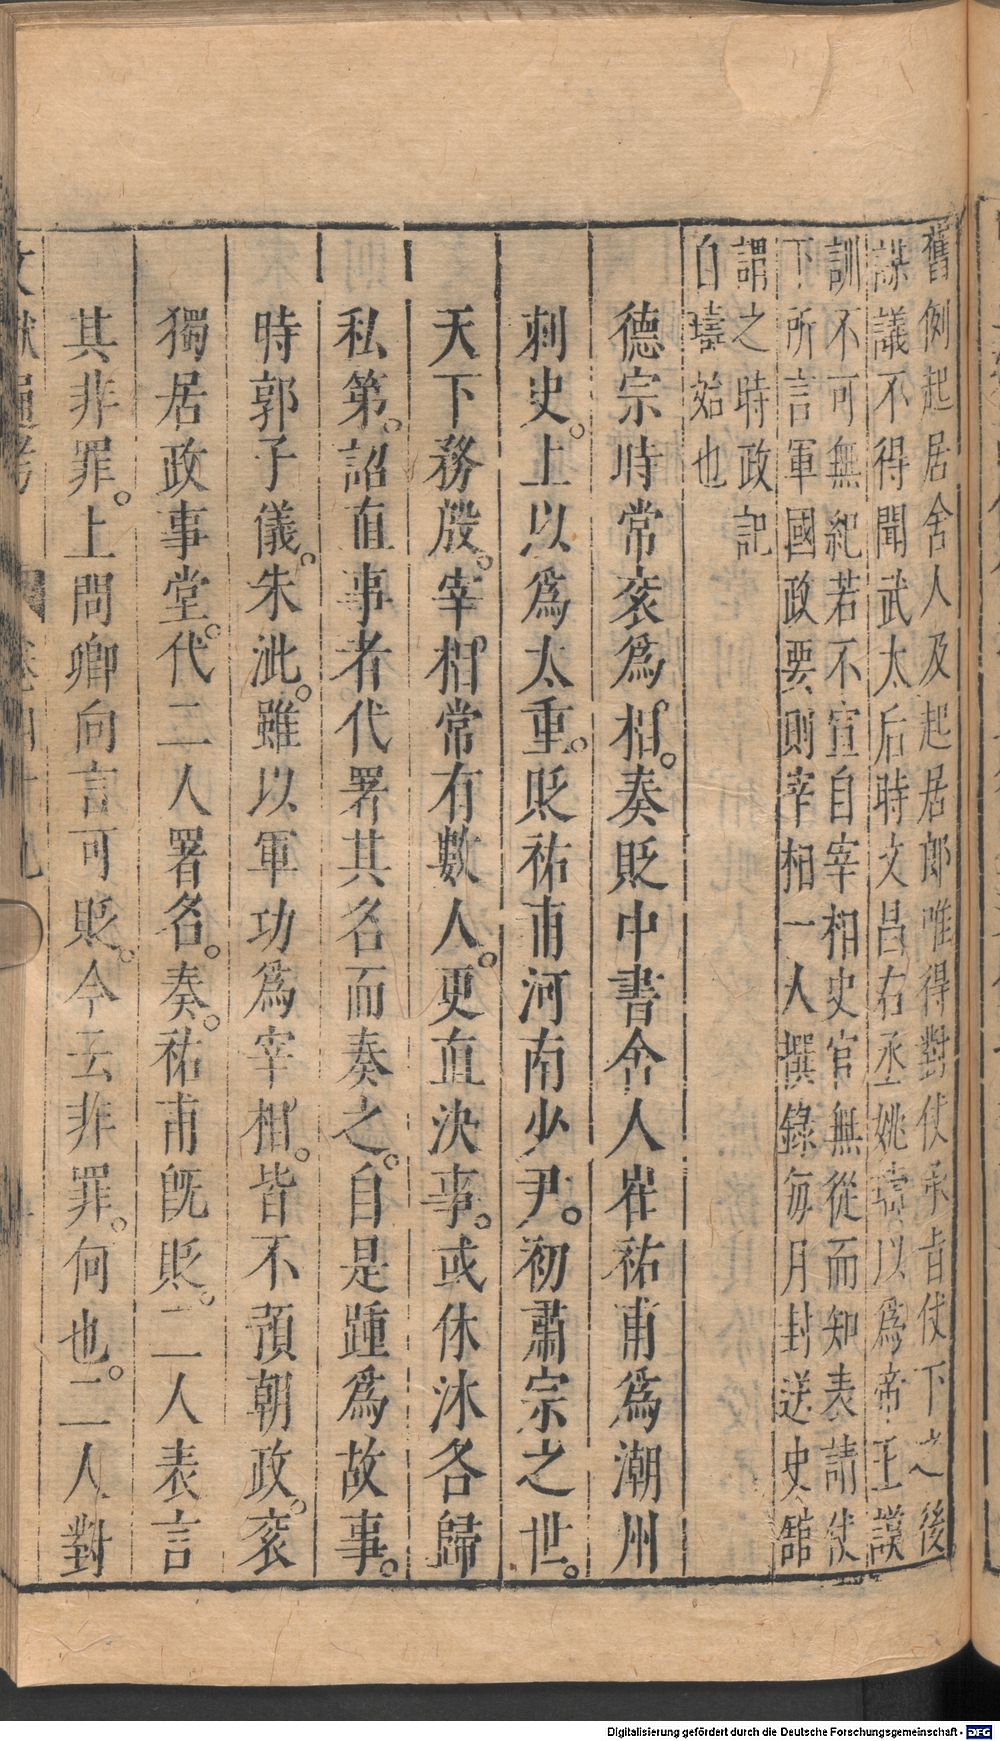 舊例起居舍人及起居郎唯得對仗承旨仗下之後
謀議不得聞武太后時文昌右丞姚璹以爲帝王謨
訓不可無紀若不宣自宰相史官無從而知表請仗
下所言軍國政要則宰相一人撰錄每月封送史館
謂之時政記
自璹始也
德宗時常衮爲相。奏貶中書舍人崔祐甫爲潮州
刺史。上以爲太重。貶祐甫河南少尹。初肅宗之世。
天下務殷。宰相常有數人。更直決事。或休沐各歸
私第。詔直事者代署其名而奏之。自是踵爲故事。
時郭子儀。朱泚。雖以軍功爲宰相。皆不預朝政。衮
獨居政事堂。代二人署名。奏。祐甫旣貶。二人表言
其非罪。上問卿向言可貶。今云非罪。何也。二人對
文獻通考 卷四十九
Digitalisierung gefördert durch die Deutsche Forschungsgemeinschaft - DFG